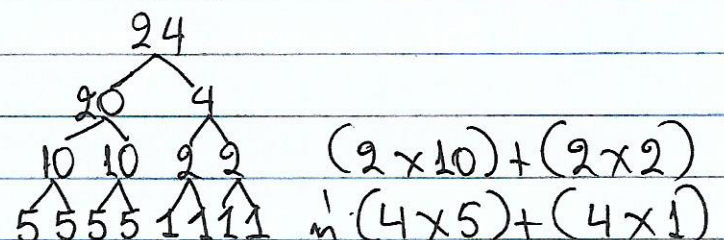 24
20 4
10 10 2 2 (2×10)+(2×2)
5 5 5 5 1 1 1 1 ή (4×5)+(4×1)